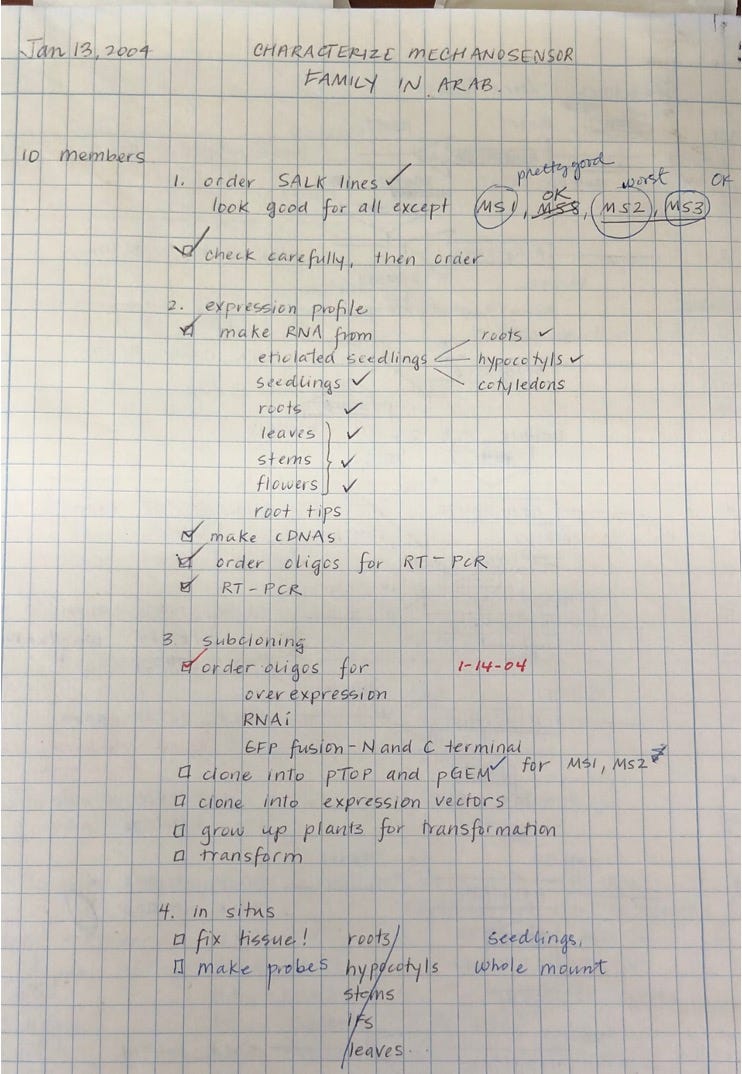 Jan 13, 2004 CHARACTERIZE MECHANOSENSOR
FAMILY IN ARAB.
10 members
pretty good
1. order SALK lines ✓ OK worst OK
look good for all except MS1, MS8, MS2, MS3
☑ check carefully, then order
2. expression profile
☑ make RNA from roots ✓
etiolated seedlings hypocotyls ✓
seedlings ✓ cotyledons
roots ✓
leaves ✓
stems ✓
flowers ✓
root tips
☑ make cDNAs
☑ order oligos for RT-PCR
☑ RT-PCR
3 subcloning
☑ order oligos for 1-14-04
overexpression
RNAi
GFP fusion - N and C terminal
☐ clone into pTOP and pGEM ✓ for MS1, MS2
☐ clone into expression vectors
☐ grow up plants for transformation
☐ transform
4. in situs
☐ fix tissue! roots seedlings,
☐ make probes hypocotyls whole mount
stems
ifs
leaves